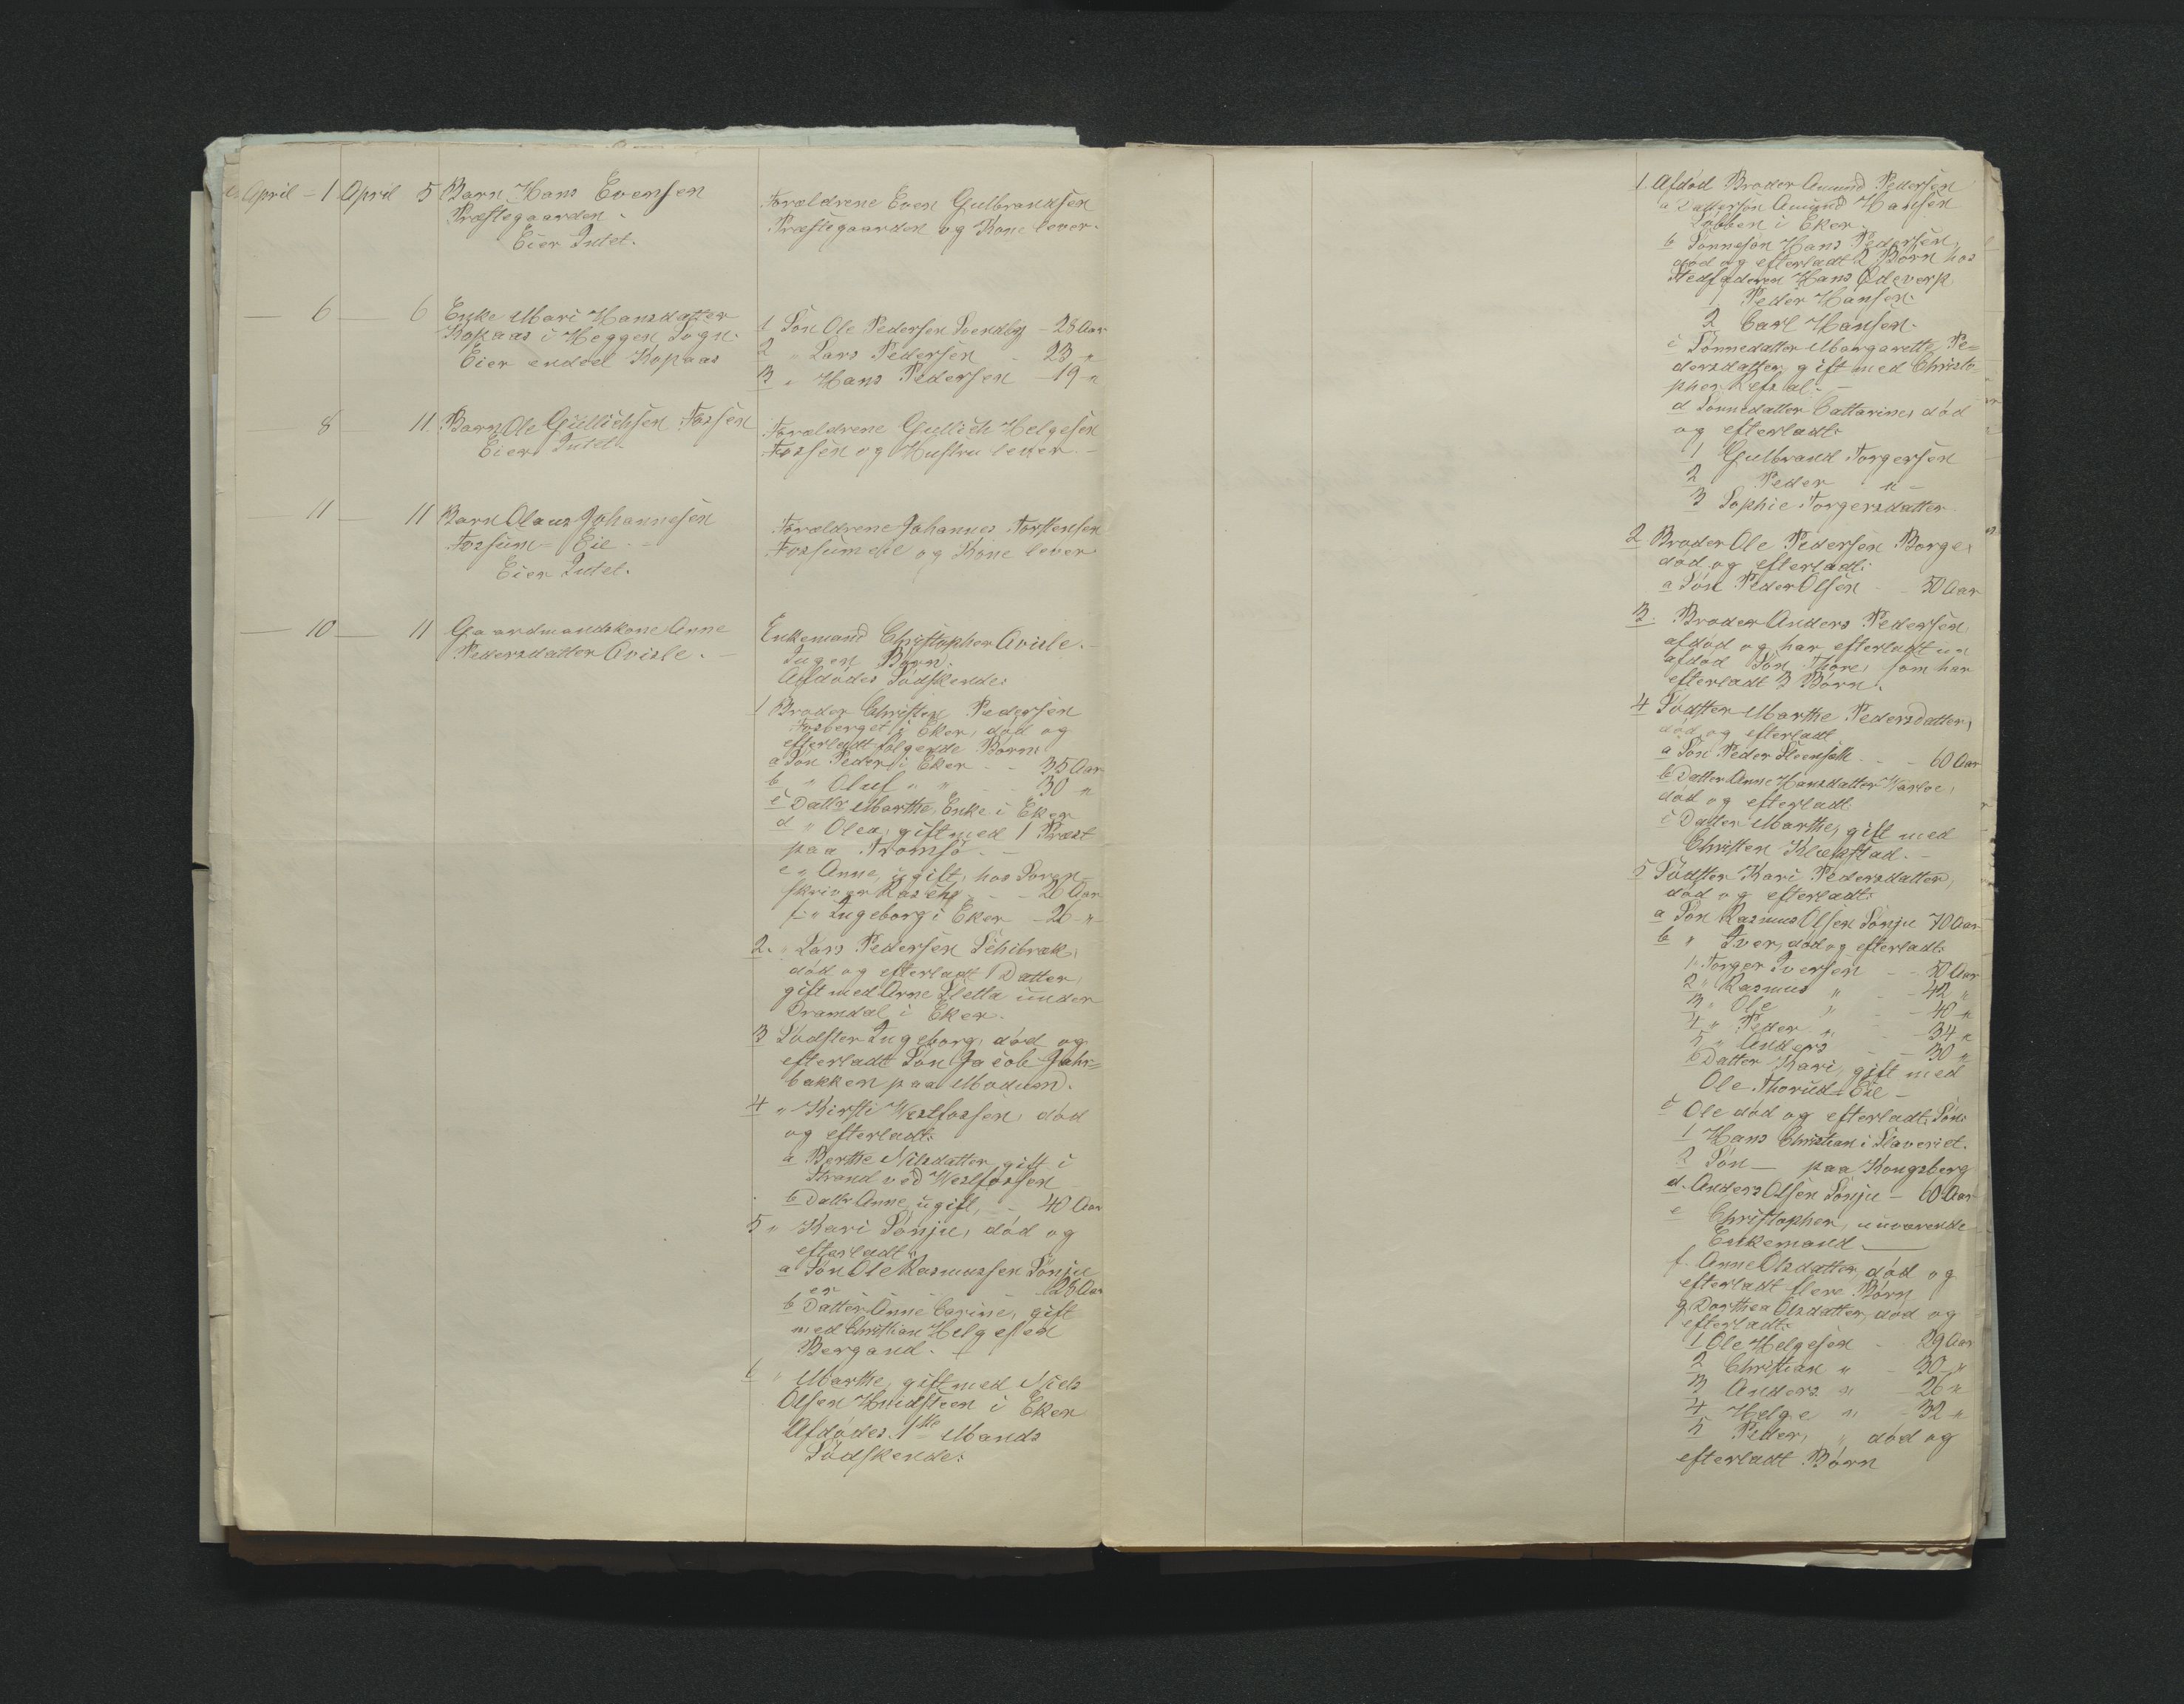 April - 1 April 5 Barn Hans Evensen
Præstegaarden.
Eier Intet.
Forældrene Even Gulbrandsen
Præstegaarden og Kone lever.
— 6 — 6 Enke Mari Hansdatter
Kopaas i Heggen Sogn.
Eier endeel Kopaas
1 Søn Ole Pedersen Svendby - 28 Aar
2 " Lars Pedersen - 23 "
3 " Hans Pedersen - 19 "
8 11 Barn Ole Gullichsen Fossen
Eier Intet.
Forældrene Gullich Helgesen
Fossen og Hustru lever. -
11 — 11 Barn Olaus Johannesen
Fossum-Eie -
Eier Intet.
Forældrene Johannes Torstensen
Fossumeie og Kone lever
— 10 — 11 Gaardmandskone Anne
Pedersdatter Avisle. -
Enkemand Christopher Avisle. -
Ingen Børn.
Afdødes Sødskende:
1 Broder Christen Pedersen
Fosberget i Eker, død og
efterladt følgende Børn
a Søn Peder i Eker - - 35 Aar
b " Oluf " " 30 "
c Dattr Marthe, Enke i Eker
d " Olea, gift med 1 Præst
paa Tromsø. -
e " Anne, ugift, hos Soren-
skriver Rasch - - 26 Aar
f " Ingeborg i Eker - 26 "
2. " Lars Pedersen Schibræk,
død og efterladt 1 Datter,
gift med Arne Sletta under
Dramdal i Eker.
3 Sødster Ingeborg, død og
efterladt Søn Jacob Jahr-
bakken paa Modum.
4 " Kirsti Westfossen, død
og efterladt:
a Berthe Nilsdatter gift i
Strand ved Westfossen
b Dattr Anne, ugift, - 40 Aar
5 " Kari Sønju, død og
efterladt:
a Søn Ole Rasmussen Sønju
er 28 Aar
b Datter Anne Carine, gift
med Christian Helgesen
Bergand. +
6 " Marthe, gift med Niels
Olsen Hvidsteen i Eker
Afdødes 1ste Mands
Sødskende:
1. Afdød Broder Amund Pedersen
a Dattersøn Amund Hansen
Løbben i Eker.
b Sønnesøn Hans Pedersen,
død og efterladt 2 Børn hos
Stedfaderen Hans Ødeverp
1 Peder Hansen.
2 Carl Hansen.
c Sønnedatter Margarette Pe-
dersdatter gift med Christo-
pher Refsal. -
d Sønnedatter Cattarine, død
og efterladt:
1 Gulbrand Torgersen
2 Peder " -
3 Sophie Torgersdatter
2 Broder Ole Pedersen Borge,
død og efterladt:
a Søn Peder Olsen - - 50 Aar
3. Broder Anders Pedersen,
afdød og har efterladt en
afdød Søn Thore, som har
efterladt 3 Børn.
4 Sødster Marthe Pedersdatter,
død og efterladt
a Søn Peder - - 60 Aar
b Datter Anne Hansdatter Varloe,
død og efterladt:
c Datter Marthe, gift med
Christen Klækstad. -
5 Sødster Kari Pedersdatter,
død og efterladt:
a Søn Rasmus Olsen Sønju 70 Aar
b " Iver, død og efterladt:
1 " Torger Iversen - - 50 Aar
2 " Rasmus " - - 42 "
3 " Ole " - - 40 "
4 " Peder " - 34 "
5 " Anders - - 30 "
6 Datter Kari, gift med
Ole Thorud-Eie -
c Ole død og efterladt: Søn:
1 Hans Christian i Slaveriet.
2 Søn — paa Kongsberg
d. Anders Olsen Sønju - 60 Aar
e Christopher, nuværende
Enkemand.
f. Anne Olsdatter, død og
efterladt flere Børn
g. Dorthea Olsdatter, død og
efterladt:
1 Ole Helgesen - 29 Aar
2 Christian " - 30 "
3 Anders " - 26 "
4 Helge " - 32 "
5 Peder, " død og
efterladt Børn